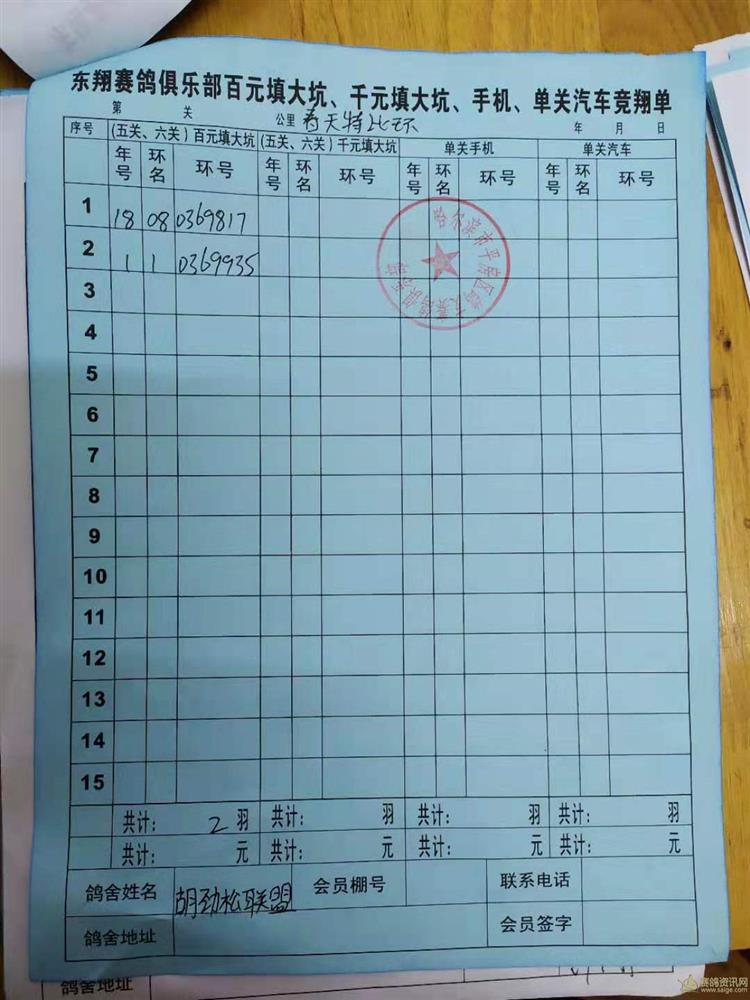 东翔赛鸽俱乐部百元填大坑、千元填大坑、手机、单关汽车竞翔单
第 关 公里 特比环 年 月 日
序号 (五关、六关)百元填大坑 (五关、六关)千元填大坑 单关手机 单关汽车
年号 环名 环号 年号 环名 环号 年号 环名 环号 年号 环名 环号
1 18 08 0369817
2 1 1 0369935
3
4
5
6
7
8
9
10
11
12
13
14
15
共计: 2 羽 共计: 羽 共计: 羽 共计: 羽
共计: 元 共计: 元 共计: 元 共计: 元
鸽舍姓名 胡劲松联盟 会员棚号 联系电话
鸽舍地址 会员签字
哈尔滨市平房区
鸽舍地址
赛鸽资讯网
www.saige.com